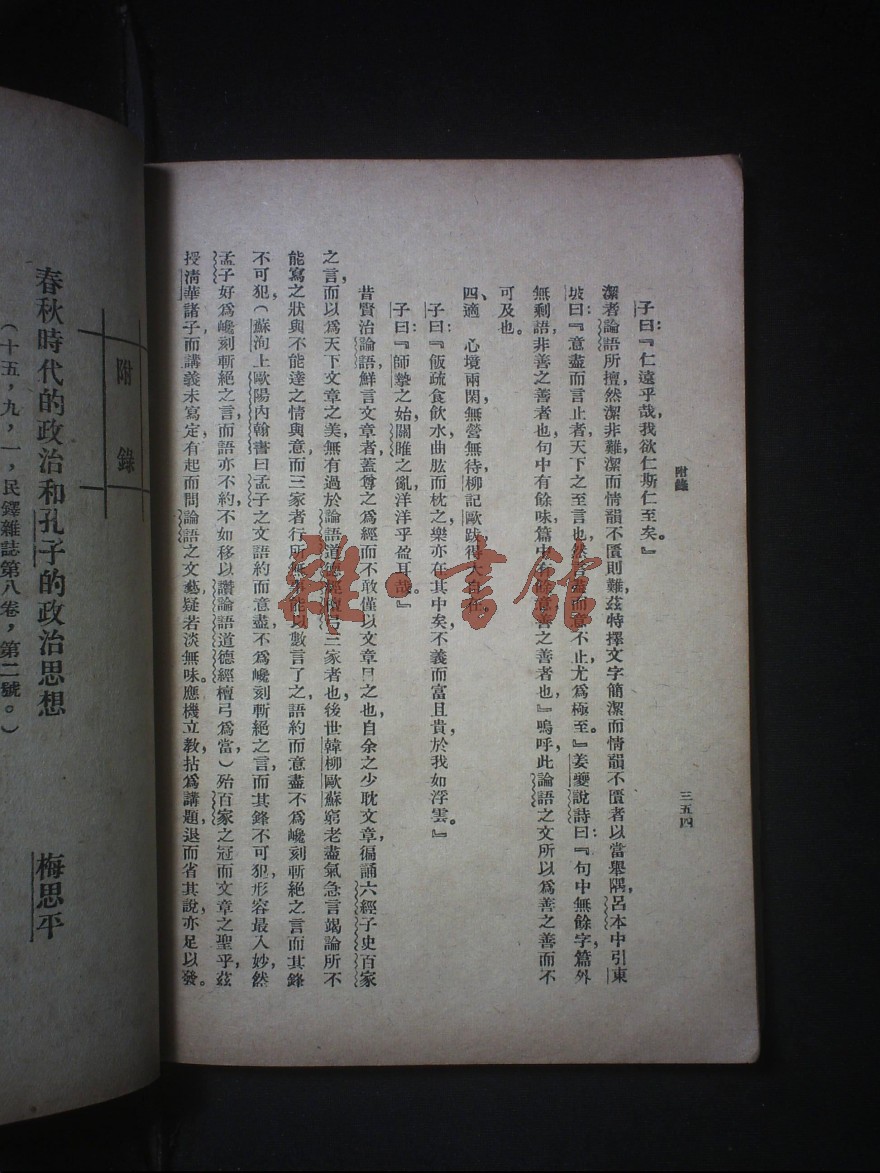 附錄
三五四
子曰:『仁遠乎哉,我欲仁斯仁至矣。』
潔者論語所擅,然潔非難,潔而情韻不匱則難,茲特擇文字簡潔而情韻不匱者以當舉隅,呂本中引東
坡曰:『意盡而言止者,天下之至言也,然言盡而意不止,尤爲極至。』姜夔說詩曰:『句中無餘字,篇外
無剩語,非善之善者也,句中有餘味,篇中有餘意,善之善者也』嗚呼,此論語之文所以爲善之善而不
可及也。
四、適 心境兩閑,無營無待,柳記歐跋得大自在。
子曰:『飯疏食飲水曲肱而枕之,樂亦在其中矣,不義而富且貴,於我如浮雲。』
子曰:『師摯之始,關雎之亂,洋洋乎盈耳哉。』
昔賢治論語,鮮言文章者,蓋尊之爲經而不敢僅以文章目之也,自余之少耽文章,徧誦六經子史百家
之言,而以爲天下文章之美,無有過於論語道德經檀弓三家者也,後世韓柳歐蘇窮老盡氣,急言竭論所不
能寫之狀與不能達之情與意,而三家者行所無事,能以數言了之,語約而意盡,不爲巉刻斬絕之言而其鋒
不可犯,(蘇洵上歐陽內翰書曰孟子之文語約而意盡,不爲巉刻斬絕之言,而其鋒不可犯,形容最入妙,然
孟子好爲巉刻斬絕之言,而語亦不約,不如移以讚論語道德經檀弓爲當,)殆百家之冠而文章之聖乎,茲
授清華諸子,而講義未寫定,有起而問論語之文藝,疑若淡無味。應機立教,拈爲講題,退而省其說,亦足以發。
附錄
春秋時代的政治和孔子的政治思想
梅思平
(十五,九,一,民鐸雜誌第八卷,第二號。)
雜·書館